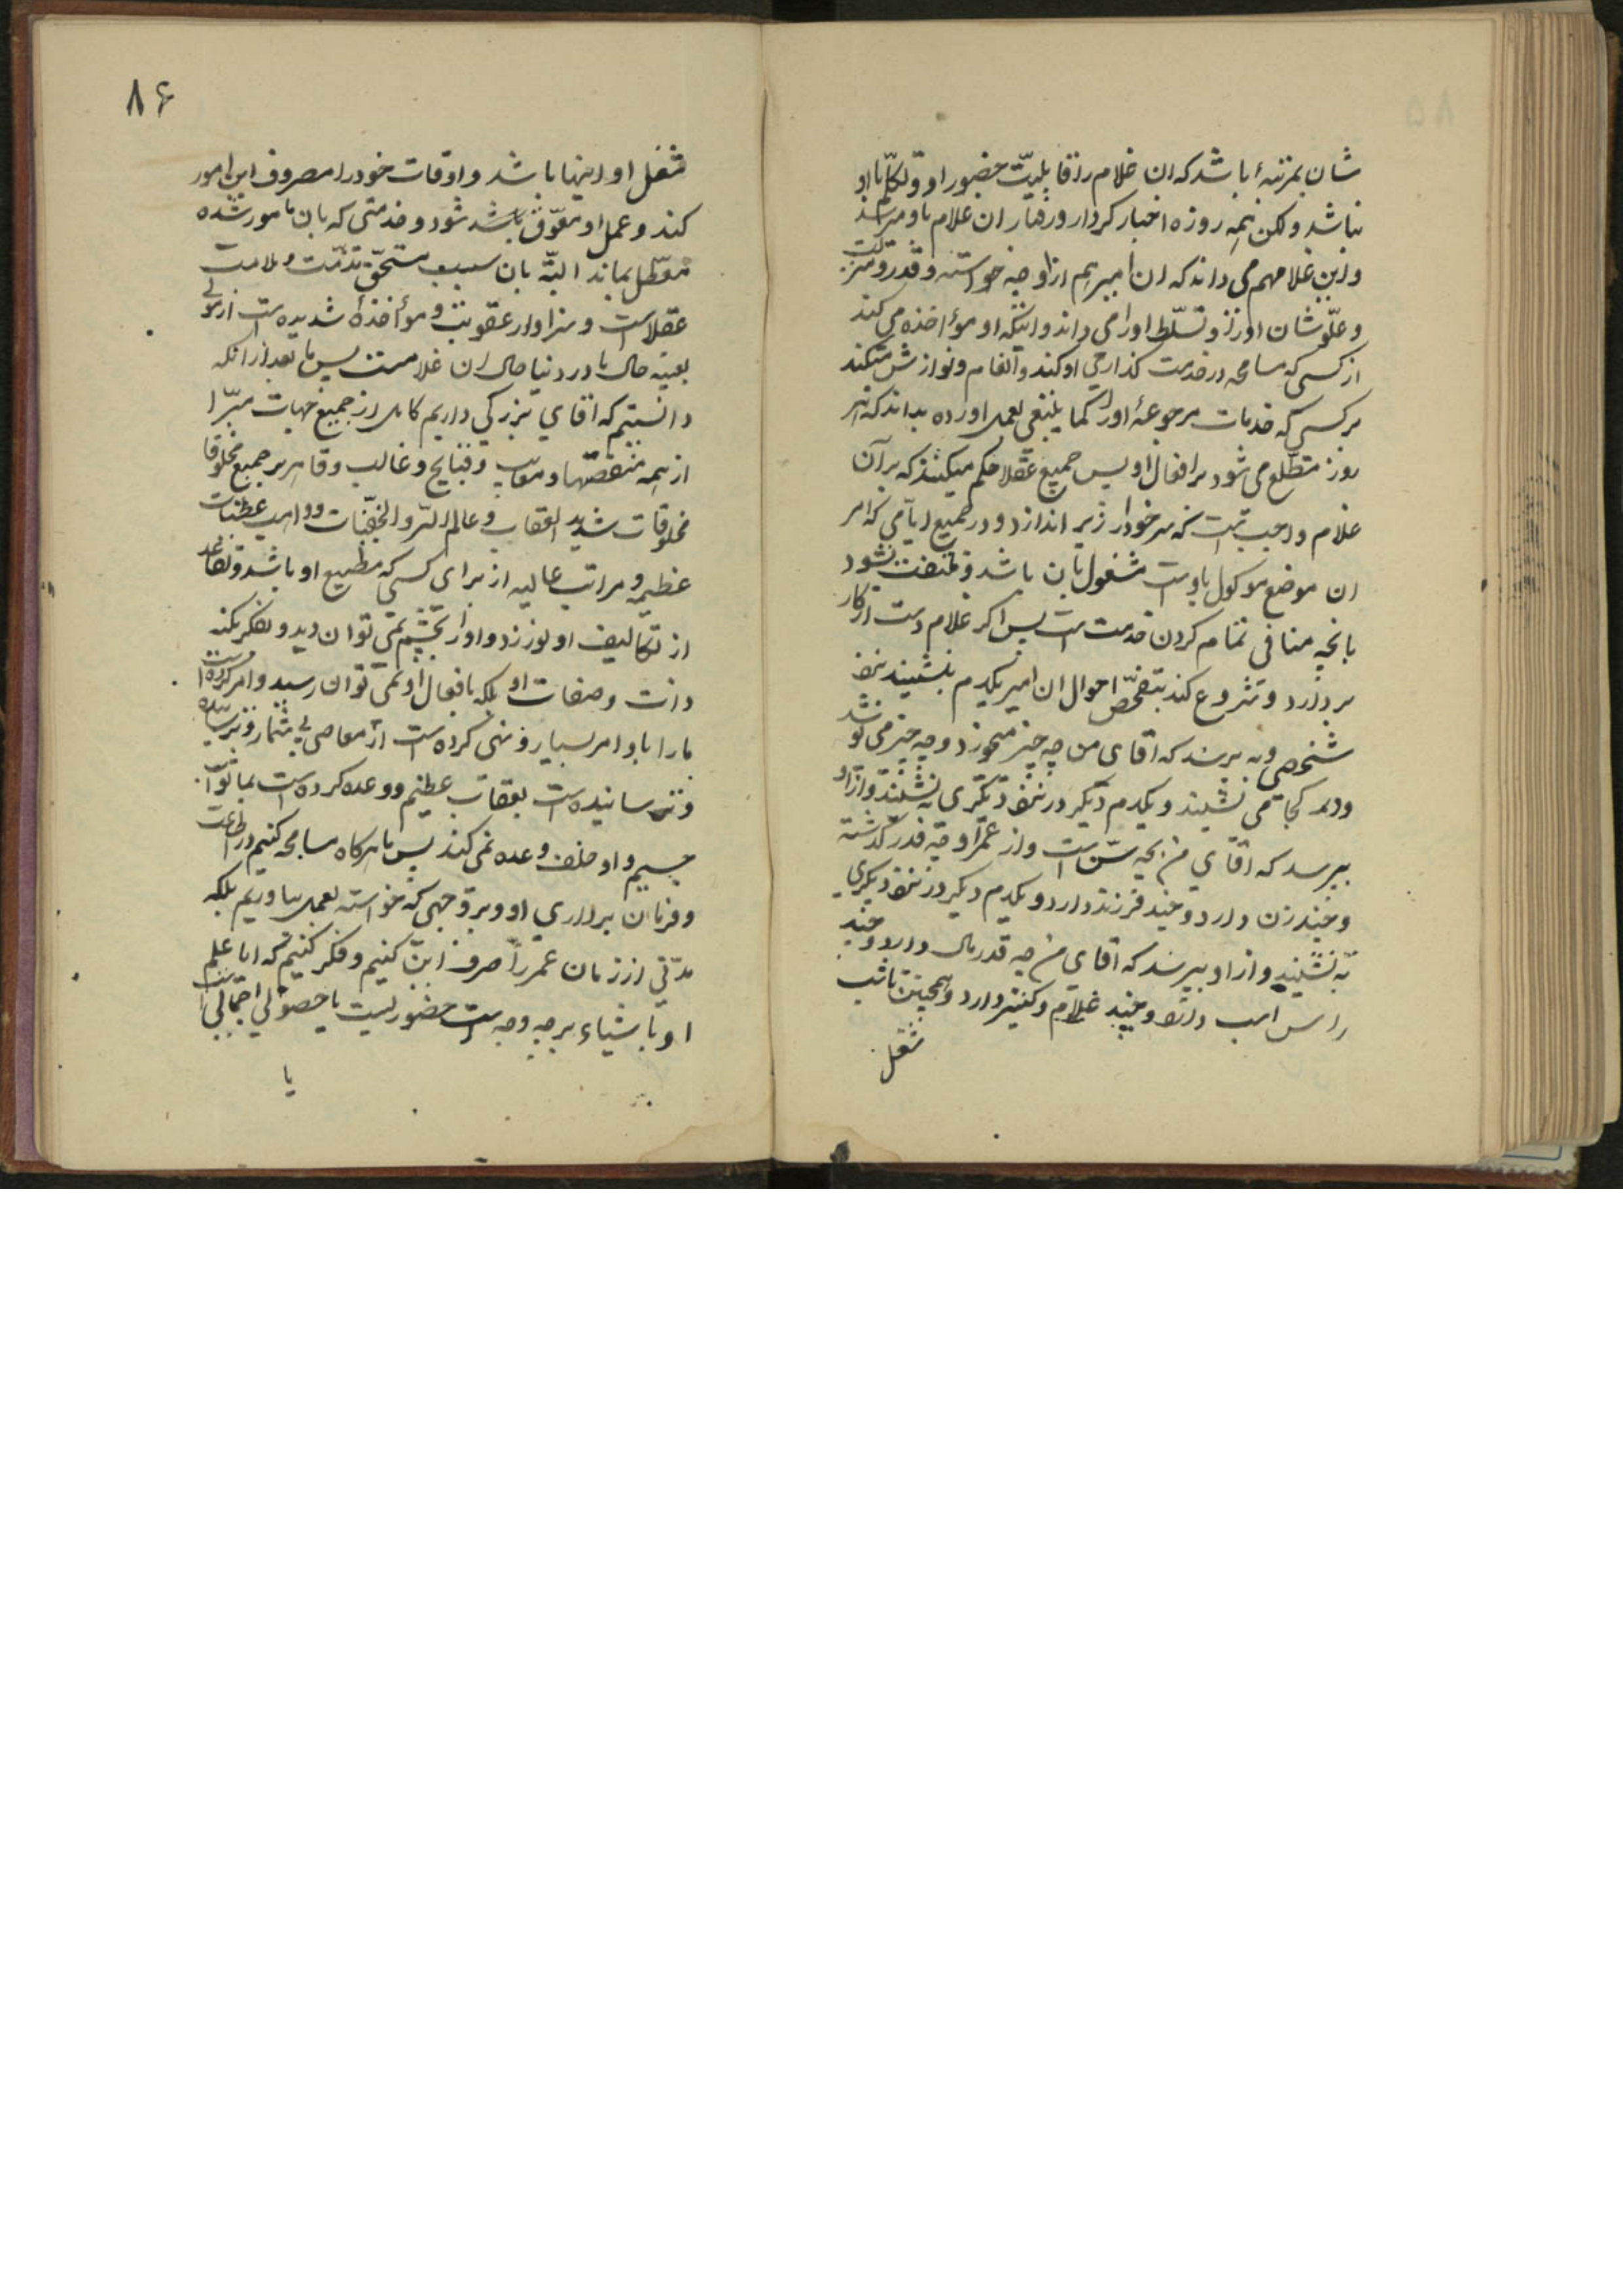 شان بمرتبهٔ باشد که ان غلام را قابلیّت حضور او و تکلّم با او
نباشد ولکن همه روزه اخبار کردار و رفتار ان غلام باو میرسد
و این غلام هم می داند که ان امیر هم از او چه خواسته و قدر و منزلت
و علّو شان او را و تسلّط او را می داند و اینکه او مؤاخذه می کند
از کسی که مسامحه در خدمت گذاری او کند و انعام و نوازش میکند
بر کسی که خدمات مرجوعهٔ او را کما ینبغی بعمل اورده بداند که هر
روز مطّلع می شود بر افعال او پس جمیع عقلا حکم میکنند که بر آن
غلام واجبست که سر خود را زیر اندازد و در جمیع ایّامی که امر
ان موضع موکول باوست مشغول بان باشد و ملتفت نشود
بانچه منافی تمام کردن خدمت است پس اکر غلام دست از کار
بردارد و شروع کند بتفحّص احوال ان امیر یکدم بنشیند نزد
شخصی و بپرسد که اقای من چه چیز میخورد و چه چیز می نوشد
و در کجا می نشیند و یکدم دیکر در نزد دیکری بنشیند و از او
بپرسد که اقای من بچه سنّ است و از عمر او چه قدر گذشته
و چند زن دارد و چند فرزند دارد و یکدم دیکر در نزد دیکری
به نشیند و از او بپرسد که اقای من چه قدر مال دارد و چند
راس اسب دارد و چند غلام و کنیز دارد و همچنین تا شب
شغل
۸۶
شغل او اینها باشد و اوقات خود را مصروف این امور
کند و عمل او معوّق باشد شود و خدمتی که بان مامور شده
معطّل بماند البتّه بان سبب مستحقّ مذمّت و ملامت
عقلاست و سزاوار عقوبت و مؤاخذهٔ شدیده است از مولی
بعینه حال ما در دنیا حال ان غلامست پس ما بعد از انکه
دانستیم که اقای بزرکی داریم کامل از جمیع جهات مبرّا
از همه منقصتها و معایب و قبایح و غالب و قاهر بر جمیع مخلوقا
مخلوقات شدید العقاب و عالم السّر و الخفیّات و واهب عطیّات
عظیمه و مراتب عالیه از برای کسی که مطیع او باشد و تقاعد
از تکالیف او نورزد و او را بچشم نمی توان دید و بفکر بکنه
ذات و صفات او بلکه بافعال او نمی توان رسید و امر کرده است
ما را باوامر بسیار و نهی کرده است از معاصی بی شمار و ترسیده
و ترسانیده است بعقاب عظیم و وعده کرده است بما ثواب
جسیم و او خلف وعده نمی کند پس ما هرکاه مسامحه کنیم در اطاعت
و فرمان برداری او و بر وجهی که خواسته بعمل نیاوریم بلکه
مدّتی از زمان عمر را صرف این کنیم و فکر کنیم که ایا علم
او باشیاء بر چه وجه است حضوریست یا حصولی اجمالی است
یا